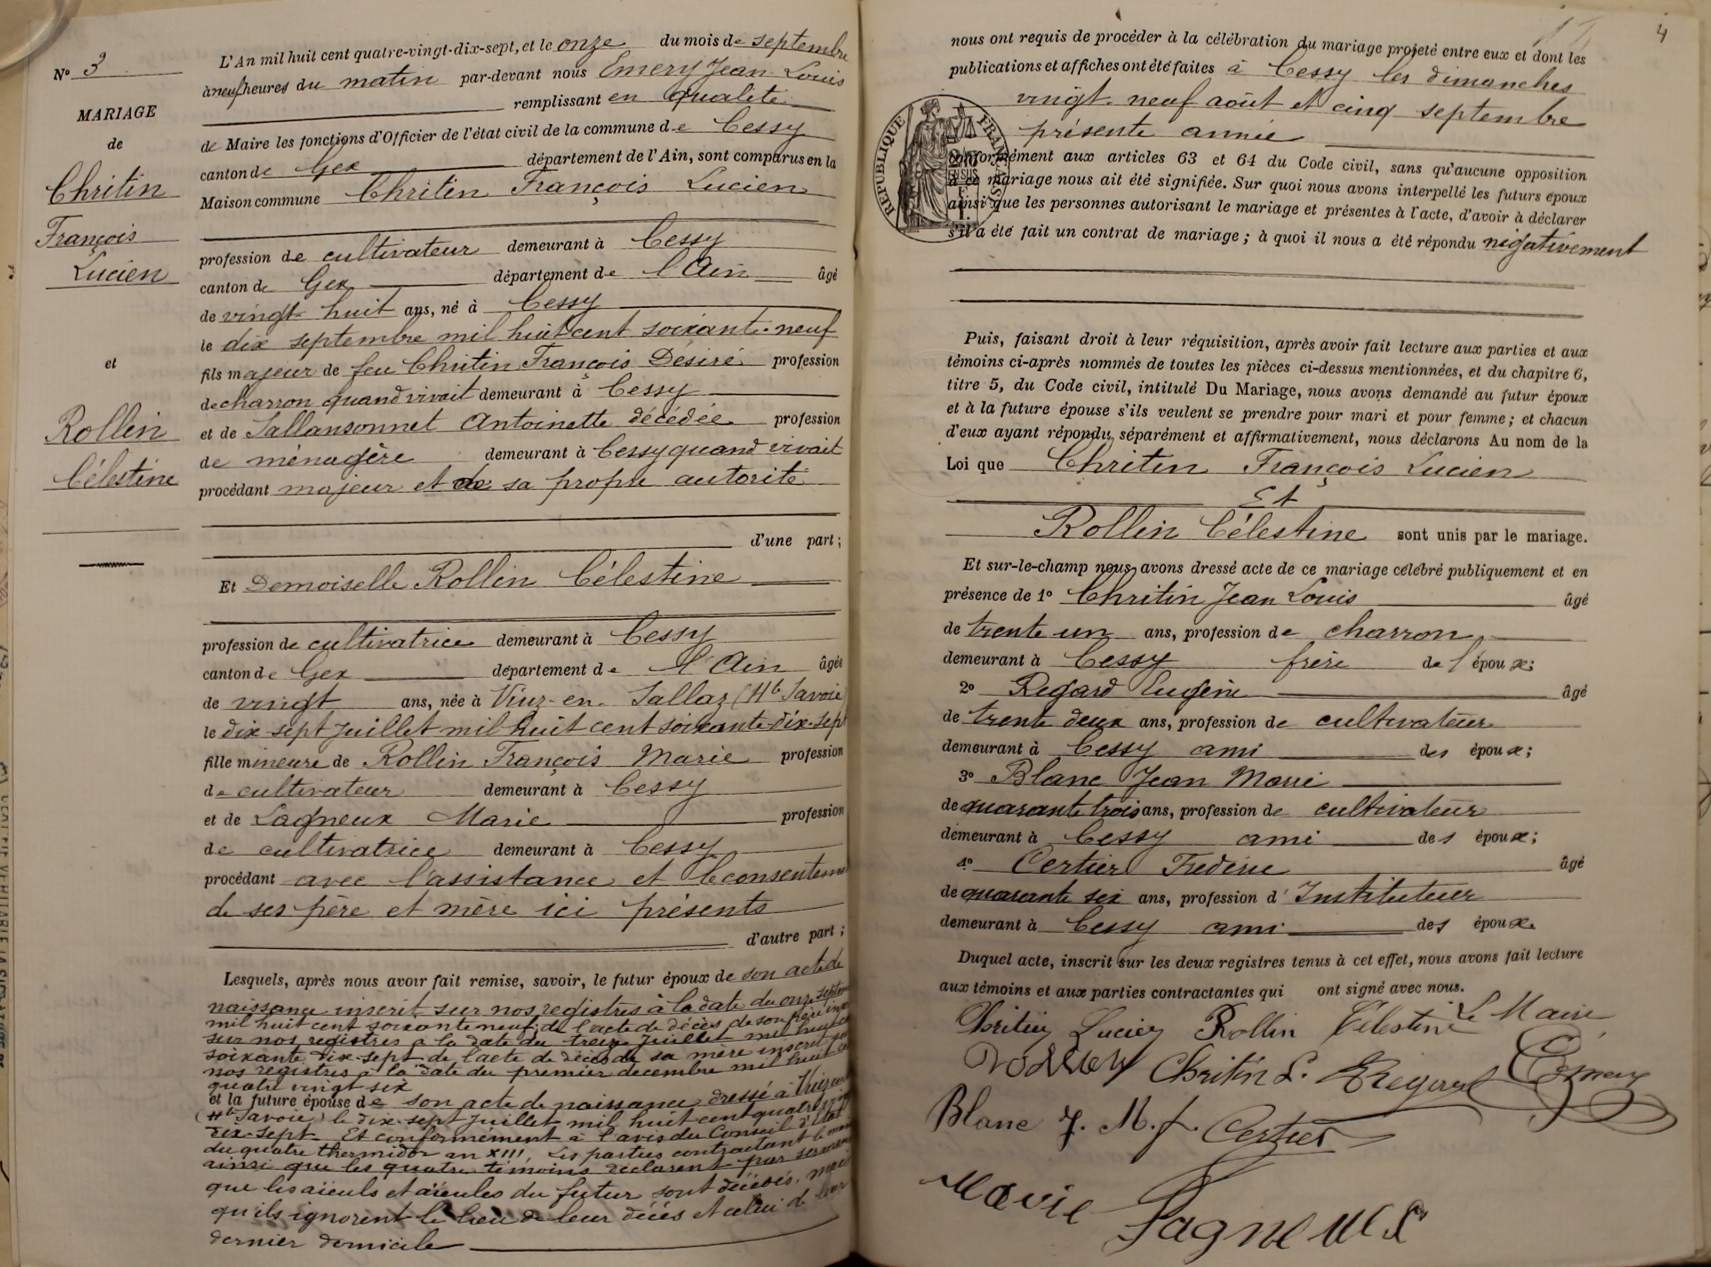 Nº 3
MARIAGE
de
Chritin
François
Lucien
et
Rollin
Célestine
L'An mil huit cent quatre-vingt-dix-sept, et le onze du mois de septembre
à neuf heures du matin par-devant nous Emery Jean Louis
remplissant en qualité
de Maire les fonctions d'Officier de l'état civil de la commune de Cessy
canton de Gex département de l'Ain, sont comparus en la
Maison commune Chritin François Lucien
profession de cultivateur demeurant à Cessy
canton de Gex département de l'Ain âgé
de vingt huit ans, né à Cessy
le dix septembre mil huit cent soixante-neuf
fils majeur de feu Chritin François Désiré profession
de charron quand vivait demeurant à Cessy
et de Sallansonnet Antoinette décédée profession
de ménagère demeurant à Cessy quand vivait
procédant majeur et de sa propre autorité
d'une part;
Et Demoiselle Rollin Célestine
profession de cultivatrice demeurant à Cessy
canton de Gex département de l'Ain âgée
de vingt ans, née à Viuz-en-Sallaz (Hte Savoie)
le dix sept juillet mil huit cent soixante-dix-sept
fille mineure de Rollin François Marie profession
de cultivateur demeurant à Cessy
et de Lagneux Marie profession
de cultivatrice demeurant à Cessy
procédant avec l'assistance et le consentement
de ses père et mère ici présents
d'autre part;
Lesquels, après nous avoir fait remise, savoir, le futur époux de son acte de
naissance inscrit sur nos registres à la date du onze septembre
mil huit cent soixante neuf; de l'acte de décès de son père inscrit
sur nos registres à la date du treize juillet mil huit cent
soixante dix-sept de l'acte de décès de sa mère inscrit sur
nos registres à la date du premier décembre mil huit cent
quatre vingt six
et la future épouse de son acte de naissance dressé à Viuz en
(Hte Savoie) le dix-sept juillet mil huit cent
dix-sept. Et conformément à l'avis du Conseil d'Etat
du quatre thermidor an XIII, les parties contractant le
ainsi que les quatre témoins déclarent par serment
que les aïeuls et aïeules du futur sont décédés, mais
qu'ils ignorent le lieu de leur décès et celui de leur
dernier domicile
4
nous ont requis de procéder à la célébration du mariage projeté entre eux et dont les
publications et affiches ont été faites à Cessy les dimanches
vingt-neuf août et cinq septembre
présente année
RÉPUBLIQUE FRANÇAISE
conformément aux articles 63 et 64 du Code civil, sans qu'aucune opposition
à ce mariage nous ait été signifiée. Sur quoi nous avons interpellé les futurs époux
ainsi que les personnes autorisant le mariage et présentes à l'acte, d'avoir à déclarer
s'il a été fait un contrat de mariage; à quoi il nous a été répondu négativement
Puis, faisant droit à leur réquisition, après avoir fait lecture aux parties et aux
témoins ci-après nommés de toutes les pièces ci-dessus mentionnées, et du chapitre 6,
titre 5, du Code civil, intitulé Du Mariage, nous avons demandé au futur époux
et à la future épouse s'ils veulent se prendre pour mari et pour femme; et chacun
d'eux ayant répondu séparément et affirmativement, nous déclarons Au nom de la
Loi que Chritin François Lucien
Et
Rollin Célestine sont unis par le mariage.
Et sur-le-champ nous avons dressé acte de ce mariage célébré publiquement et en
présence de 1º Chritin Jean Louis âgé
de trente un ans, profession de charron
demeurant à Cessy frère de l'époux;
2º Regard Eugène âgé
de trente deux ans, profession de cultivateur
demeurant à Cessy ami des époux;
3º Blanc Jean Marie
de quarante trois ans, profession de cultivateur
demeurant à Cessy ami des époux;
4º Certier Frédéric âgé
de quarante six ans, profession d'Instituteur
demeurant à Cessy ami des époux.
Duquel acte, inscrit sur les deux registres tenus à cet effet, nous avons fait lecture
aux témoins et aux parties contractantes qui ont signé avec nous.
Chritin Lucien Rollin Célestine Le Maire
Chritin L. E Regard Emery
Blanc J. M. f. Certier
Marie Lagneux